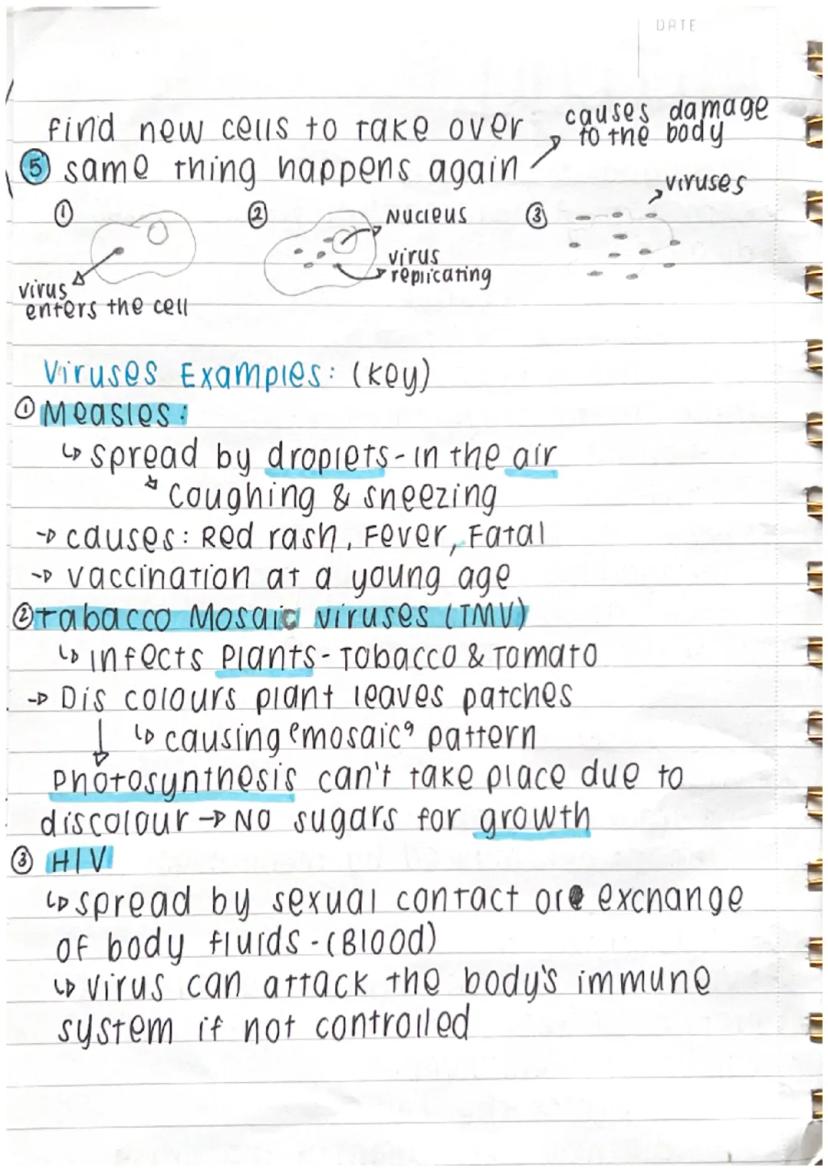 DATE
find new cells to take over
causes damage
to the body
⑤ same thing happens again
①
virus
enters the cell
②
Nucleus
virus
replicating
③
viruses
Viruses Examples: (key)
① Measles:
↳ spread by droplets - in the air
↳ coughing & sneezing
→ causes: Red rash, Fever, Fatal
→ vaccination at a young age
② Tabacco Mosaic viruses (TMV)
↳ infects Plants - Tobacco & Tomato
→ Dis colours plant leaves patches
↳ causing "mosaic" pattern
Photosynthesis can't take place due to
discolour → No sugars for growth
③ HIV
↳ spread by sexual contact or exchange
of body fluids - (Blood)
↳ virus can attack the body's immune
system if not controlled